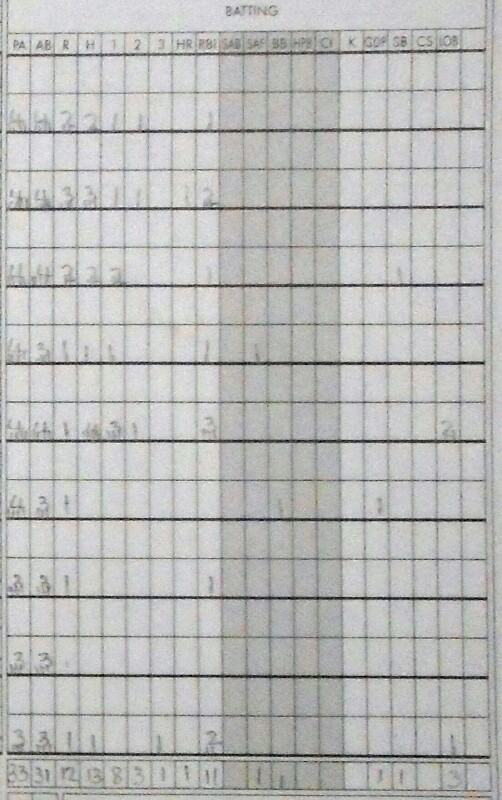 BATTING
PA AB R H 1 2 3 HR RBI SAB SAF BB HPB CI K GDP SB CS LOB
4 4 2 2 1 1 1
4 4 3 3 1 1 1 2
4 4 2 2 2 1 1
4 3 1 1 1 1 1
4 4 1 4 3 1 3 2
4 3 1 1 1
3 3 1 1
3 3
3 3 1 1 1 2 1
33 31 12 13 8 3 1 1 11 1 1 1 1 3